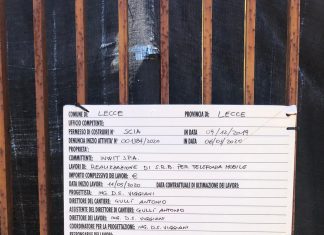 COMUNE DI: LECCE PROVINCIA DI: LECCE
UFFICIO COMPETENTE:
PERMESSO DI COSTRUIRE N° SCIA IN DATA 04/12/2019
DENUNCIA INIZIO ATTIVITA' N° 001384/2020 IN DATA 06/03/2020
PROPRIETA':
COMMITTENTE: INWIT S.P.A.
LAVORI DI: REALIZZAZIONE DI S.R.B. PER TELEFONIA MOBILE
IMPORTO COMPLESSIVO DEI LAVORI: €
DATA INIZIO LAVORI: 11/05/2020 DATA CONTRATTUALE DI ULTIMAZIONE DEI LAVORI:
PROGETTISTA: ING. D.S. VIGGIANI
DIRETTORE DEL CANTIERE: GULLÌ ANTONIO
ASSISTENTE DEL DIRETTORE DEI CANTIERE: GULLÌ ANTONIO
DIRETTORE DEI LAVORI: ING. D.S. VIGGIANI
COORDINATORE PER LA PROGETTAZIONE: ING. D.S. VIGGIANI